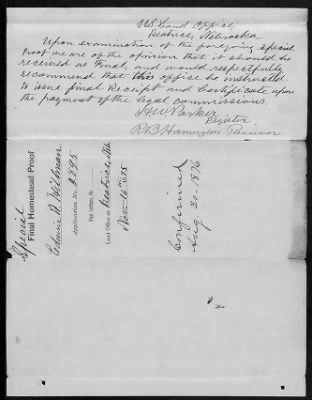 U.S. Land Office,
Beatrice, Nebraska
Upon examination of the foregoing special
Proof we are of the opinion that it should be
received as Final, and would respectfully
recommend that this office be instructed
to issue final Receipt and Certificate upon
the payment of the legal commissions.
H W Parker
Register
R B Harrington Receiver
Special
Final Homestead Proof
Edwin R. Wilman
Application No. 2895
Land Office at Beatrice Neb
Confirmed
Aug 30 - 1876